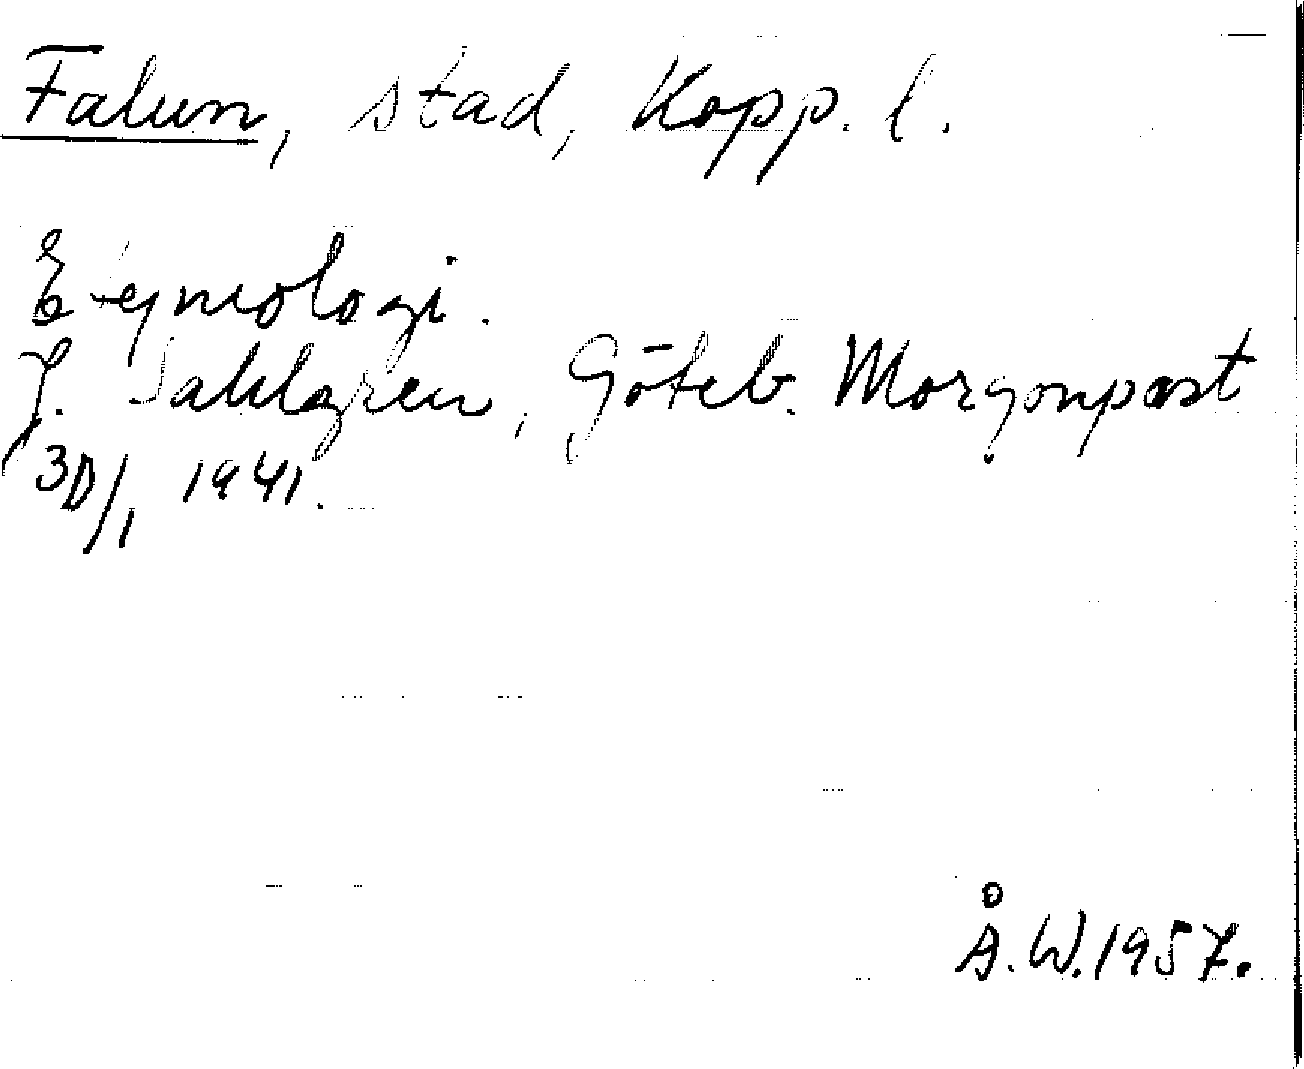 Falun, stad, Kopp. l.
Etymologi.
J. Sahlgren, Göteb. Morgonpost
30/1 1941.
Å.W. 1957.